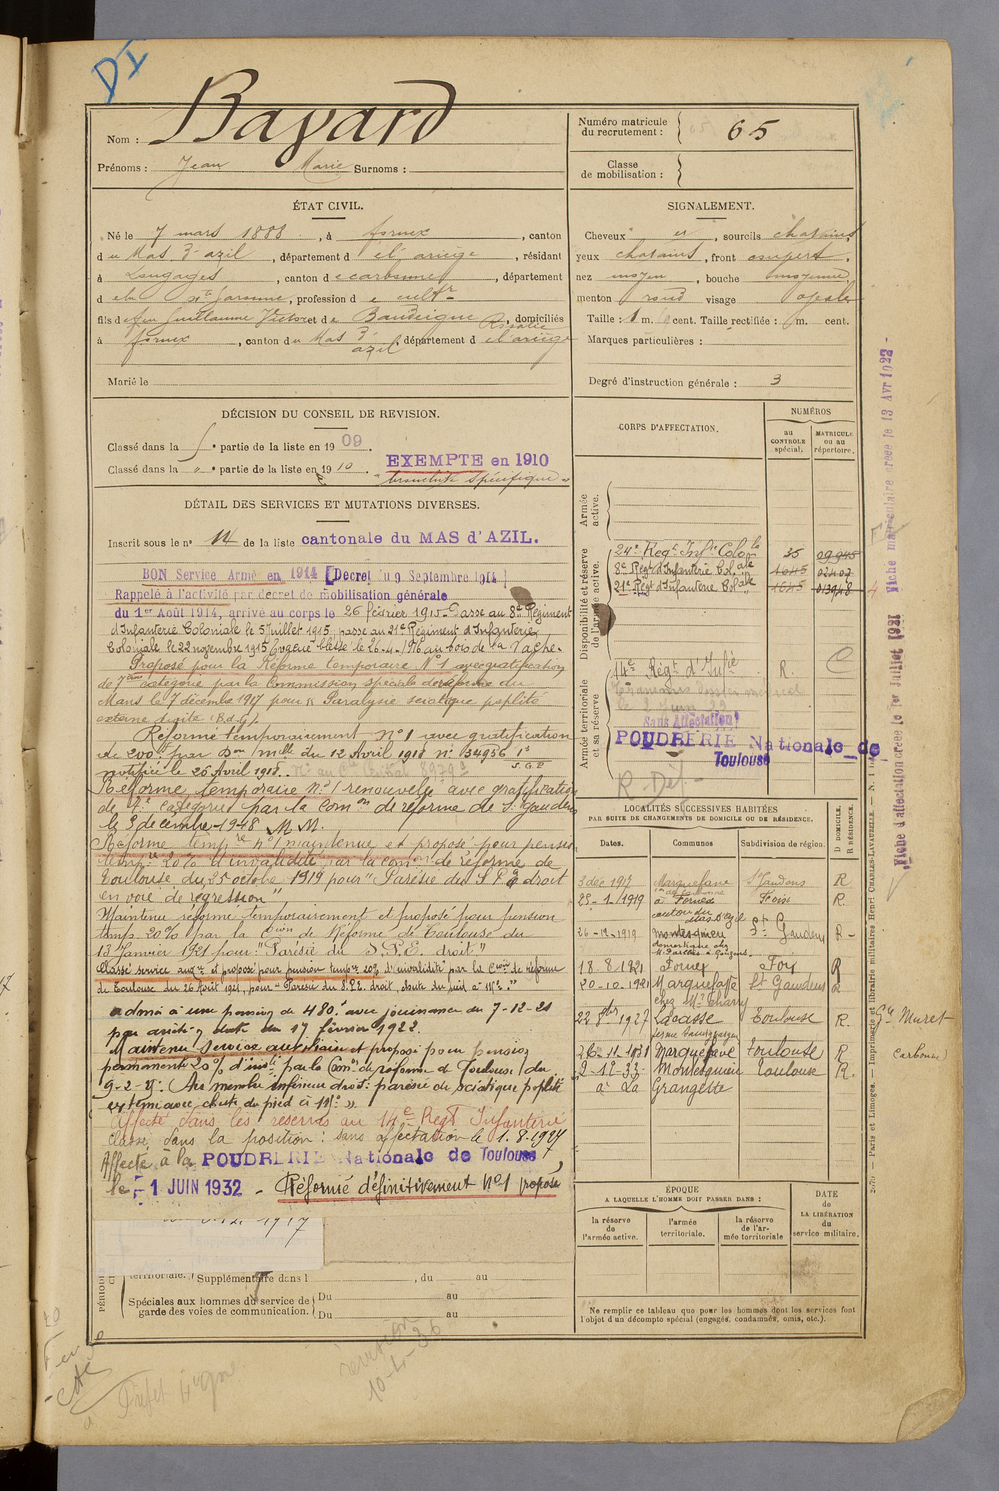 DI
Nom : Bayard
Prénoms : Jean Marie Surnoms :
Numéro matricule
du recrutement : 65
Classe
de mobilisation :
ÉTAT CIVIL.
Né le 7 mars 1888, à fornex, canton
du Mas d'azil, département d el ariège, résidant
à , canton d e carbonne, département
d ela hte garonne, profession d e cultr
fils d e feu Guillaume Victor et d e Baudeigne Rosalie, domiciliés
à fornex, canton du Mas d'azil département d el'ariège
Marié le
SIGNALEMENT.
Cheveux et, sourcils chatains
yeux chatains, front ,
nez moyen, bouche moyenne,
menton rond visage ovale
Taille : 1 m. cent. Taille rectifiée : m. cent.
Marques particulières :
Degré d'instruction générale : 3
DÉCISION DU CONSEIL DE REVISION.
Classé dans la partie de la liste en 1909.
Classé dans la " partie de la liste en 1910
EXEMPTÉ en 1910
"bronchite spécifique"
DÉTAIL DES SERVICES ET MUTATIONS DIVERSES.
Inscrit sous le n° 14 de la liste cantonale du MAS d'AZIL.
BON Service Armé en 1914 [Decret du 9 Septembre 1914]
Rappelé à l'activité par decret de mobilisation générale
du 1er Août 1914, arrivé au corps le 26 février 1915. Passé au 8e Régiment
d'Infanterie Coloniale le 5 Juillet 1915 passe au 21e Régiment d'Infanterie
Coloniale le 22 novembre 1915 Evacué blessé le 26-4-1916 au bois de la Vache.
Proposé pour la Réforme temporaire N°1 avec gratification
de 7eme catégorie par la Commission spéciale de réforme du
Mans le 7 décembre 1917 pour "Paralysie sciatique poplité
externe droite (B.d.G).
Réformé temporairement n°1 avec gratification
de 200f par Don mlle du 12 Avril 1918 n° 134956 1°
S.G.P.
notifié le 26 Avril 1918. N° au
Réforme temporaire n°1 renouvelée avec gratification
de 7e catégorie par la Comon de réforme de St Gaudens
le 3 décembre 1918 M M.
Réforme tempre n°1 maintenue et proposé pour pension
tempre 20% d'invalidité par la comon de réforme de
Toulouse du 25 octobre 1919 pour "Parésie du S.P.E droit
en voie de régression"
Maintenu réformé temporairement et proposé pour pension
temp. 20% par la Comon de Réforme de Toulouse du
13 Janvier 1921 pour "Parésie du S.P.E. droit"
Classé service auxre et proposé pour pension tempre 20% d'invalidité par la Comon de Réforme
de Toulouse du 26 Août 1921, pour "Parésie du S.P.E. droit, chute du pied à
admis à une pension de 480f avec jouissance du 7-12-21
par arrêté en date du 17 février 1922.
Maintenu service auxiliaire et proposé pour pension
permanente 20% d'invté par la Comon de réforme de Toulouse du
9-2-27. membre inférieur droit: parésie du sciatique poplité
externe avec chute du pied à
Affecté dans les réserves au 14e Regt Infanterie
Classé dans la position : sans affectation le 1.8.1927
Affecté à la POUDRERIE Nationale de Toulouse
le 1 JUIN 1932 - Réformé définitivement N°1 proposé
1917
territoriale. Supplémentaire dans l , du au
Spéciales aux hommes du service de Du au
garde des voies de communication. Du au
CORPS D'AFFECTATION.
NUMÉROS
au
CONTROLE
spécial.
MATRICULE
ou au
répertoire.
Armée
active.
Disponibilité et réserve
de l'armée active.
24e Regt Infie Colole 25 09945
8e Regt d'Infanterie Colale 1645 02407
21e Régt d'Infanterie Colale 1645 013948
Armée territoriale
et sa réserve
14e Régt d'Infie R.
Sans Affectation
POUDRERIE Nationale de
Toulouse
R Déf-
LOCALITÉS SUCCESSIVES HABITÉES
PAR SUITE DE CHANGEMENTS DE DOMICILE OU DE RÉSIDENCE.
Dates. Communes Subdivision de région. D DOMICILE. R RÉSIDENCE.
3 déc. 1917 Marquefave St Gaudens R.
25-1-1919 à Fornex Foix R.
canton du Mas d'Azil
26-12-1919 Montesquieu St Gaudens R-
domestique chez
18.8.1921 Fornex Foix R
20-10-1921 Marquefave St Gaudens R
22 8bre 1927 Lacasse Toulouse R. Con Muret
26-11-1931 Marquefave Toulouse R Carbonne
9-12-33- Montesquieu Toulouse R.
à La Grangette
ÉPOQUE
A LAQUELLE L'HOMME DOIT PASSER DANS :
la réserve
de
l'armée active.
l'armée
territoriale.
la réserve
de l'ar-
mée territoriale
DATE
de
LA LIBÉRATION
du
service militaire.
Ne remplir ce tableau que pour les hommes dont les services font
l'objet d'un décompte spécial (engagés, condamnés, omis, etc.).
Fiche matriculaire créée le 13 Avr 1922 -
Fiche d'affectation créée le 1er Juillet 1921
Paris et Limoges. — Imprimerie et librairie militaires Henri CHARLES-LAVAUZELLE.
révision
10-4-36